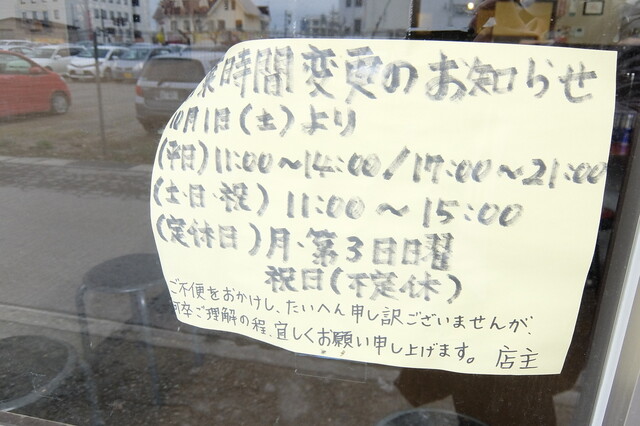 業時間変更のお知らせ
10月1日(土)より
(平日)11:00～14:00/17:00～21:00
(土・日・祝)11:00～15:00
(定休日)月・第3日日曜
祝日(不定休)
ご不便をおかけし、たいへん申し訳ございませんが、
何卒ご理解の程、宜しくお願い申し上げます。 店主